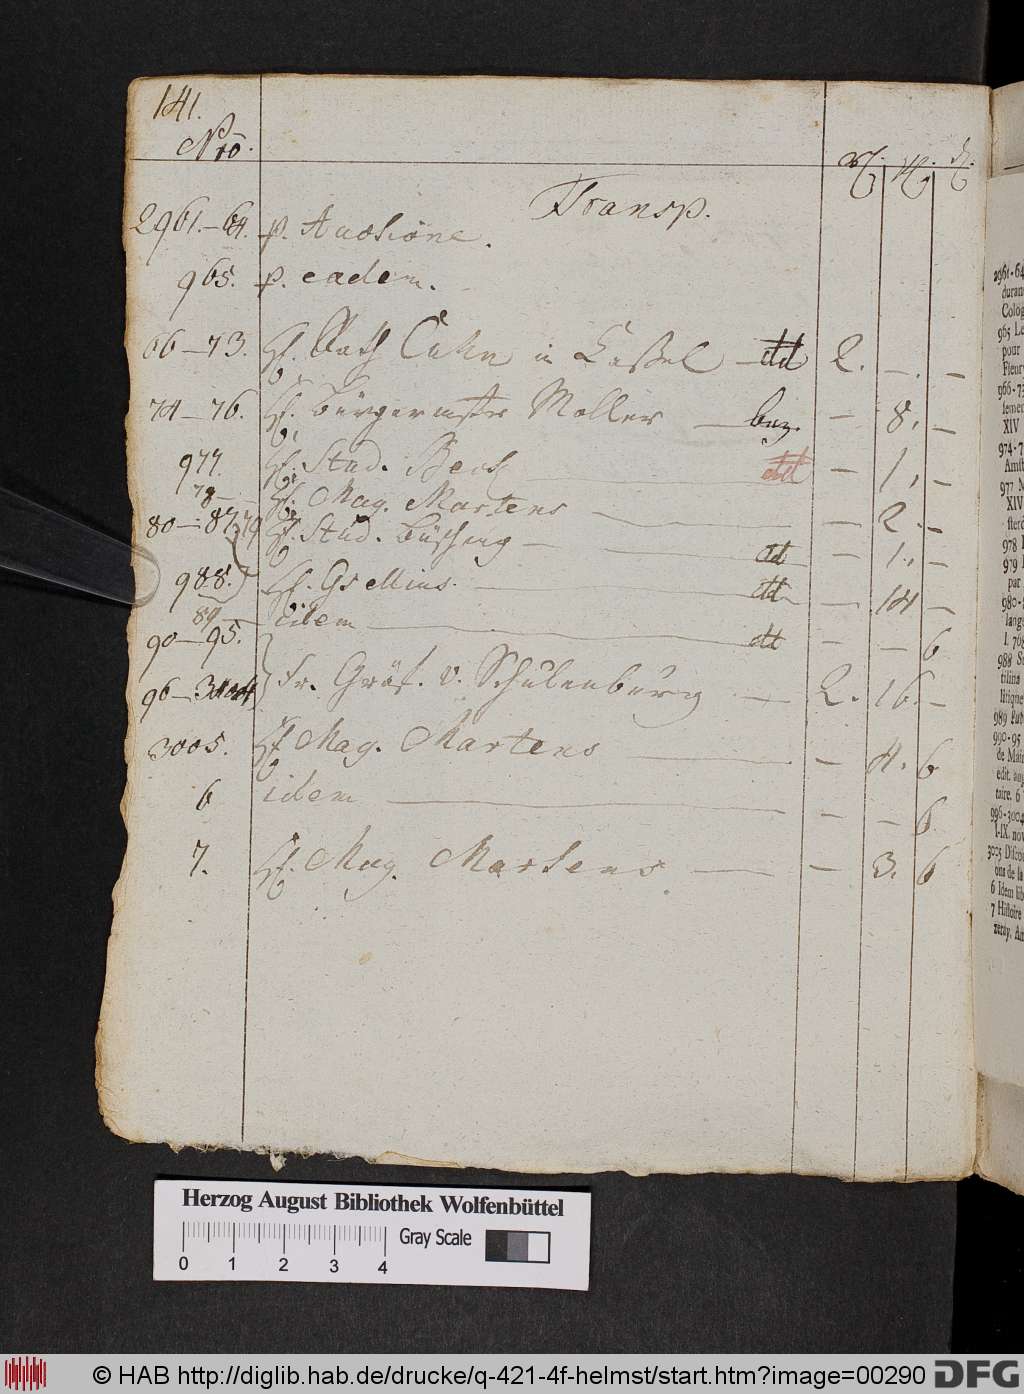 141.
Nro.
Transp.
2961.-64. p. Auctione.
965. p. eadem.
66-73. H. Rath Cuhn in Cassel dd 2. - . -
74-76. H. Bürgermstr Möller bez. - 8. -
977. H. Stud. Beck dd - 1. -
78- H. Mag. Martens - 2. -
80-87. 79 H. Stud. Büsching - dd - 1. -
988. H. Gsellius. dd - 14 -
89 - idem dd - - 6
90-95.
96-3004 Fr. Gräf. v. Schulenburg - 2. 16. -
3005. H. Mag. Martens - 4. 6
6 idem - - 6
7. H. Mag. Martens - 3. 6
2961-64
duran
Colog
965 Le
pour
Fleury
966-73
XIV
974-7
Amst
977
XIV
978
979
par
980-
lange
988
989
990-95
de
edit.
taire. 6
996-3004
I-IX. nov
3005 Disco
ons de la
6 Idem lib
7 Histoire
zeray. Am
Herzog August Bibliothek Wolfenbüttel
Gray Scale
0 1 2 3 4
© HAB http://diglib.hab.de/drucke/q-421-4f-helmst/start.htm?image=00290 DFG